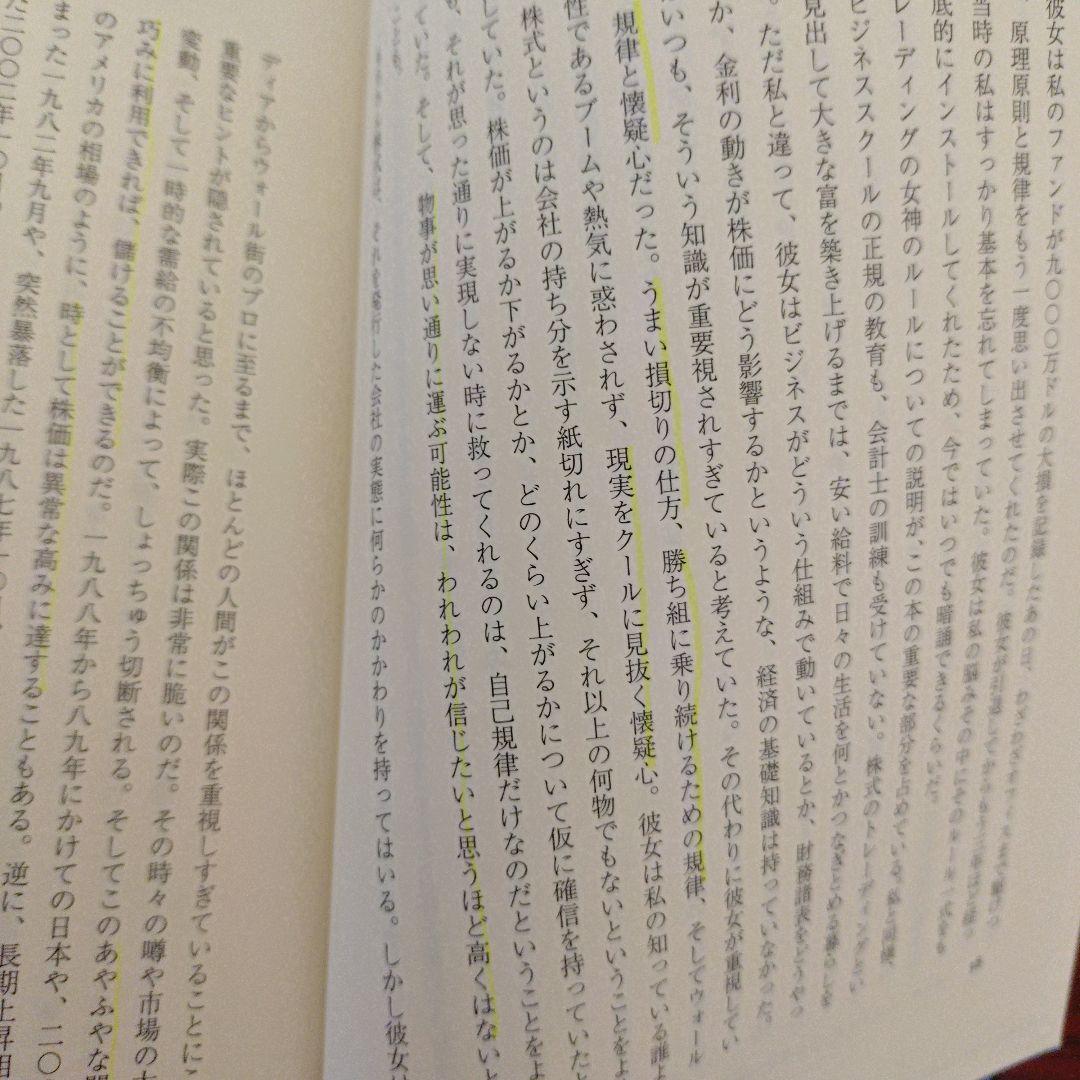 彼女は私のファンドが九〇〇〇万ドルの大損を記録したあの日、わざわざオフィスまで
原理原則と規律をもう一度思い出させてくれたのだ。彼女が引退してから
当時の私はすっかり基本を忘れてしまっていた。彼女は私の脳みその中にそのルール
底的にインストールしてくれたため、今ではいつでも暗誦できるくらいだ。
レーディングの女神のルールについての説明が、この本の重要な部分を占めている。私と同様、
ビジネススクールの正規の教育も、会計士の訓練も受けていない。株式のトレーディングとい
見出して大きな富を築き上げるまでは、安い給料で日々の生活を何とかつなぎとめる暮らしを
。ただ私と違って、彼女はビジネスがどういう仕組みで動いているとか、財務諸表をどうやっ
か、金利の動きが株価にどう影響するかというような、経済の基礎知識は持っていなかった。
いつも、そういう知識が重要視されすぎていると考えていた。その代わりに彼女が重視してい
規律と懐疑心だった。うまい損切りの仕方、勝ち組に乗り続けるための規律、そしてウォール
性であるブームや熱気に惑わされず、現実をクールに見抜く懐疑心。彼女は私の知っている誰よ
株式というのは会社の持ち分を示す紙切れにすぎず、それ以上の何物でもないということをよ
していた。株価が上がるか下がるかとか、どのくらい上がるかについて仮に確信を持っていたと
も、それが思った通りに実現しない時に救ってくれるのは、自己規律だけなのだということをよ
ていた。そして、物事が思い通りに運ぶ可能性は、われわれが信じたいと思うほど高くはないと
それを発行した会社の実態に何らかのかかわりを持ってはいる。しかし彼女は
ディアからウォール街のプロに至るまで、ほとんどの人間がこの関係を重視しすぎていることにこ
重要なヒントが隠されていると思った。実際この関係は非常に脆いのだ。その時々の噂や市場の
変動、そして一時的な需給の不均衡によって、しょっちゅう切断される。そしてこのあやふやな関
巧みに利用できれば、儲けることができるのだ。一九八八年から八九年にかけての日本や、二〇
のアメリカの相場のように、時として株価は異常な高みに達することもある。逆に、長期上昇相
まった一九八二年九月や、突然暴落した一九八七年一〇月、
た二〇〇二年一〇月